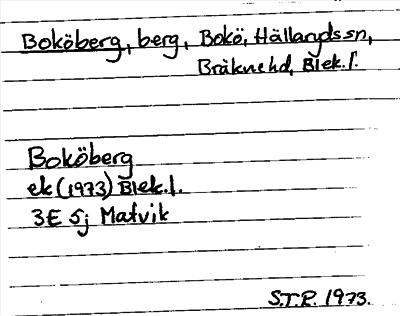 Boköberg, berg, Bokö, Hällaryds sn,
Bräkne hd, Blek. l.
Boköberg
ek (1973) Blek. l.
3E 5j Matvik
S.T.R. 1973.